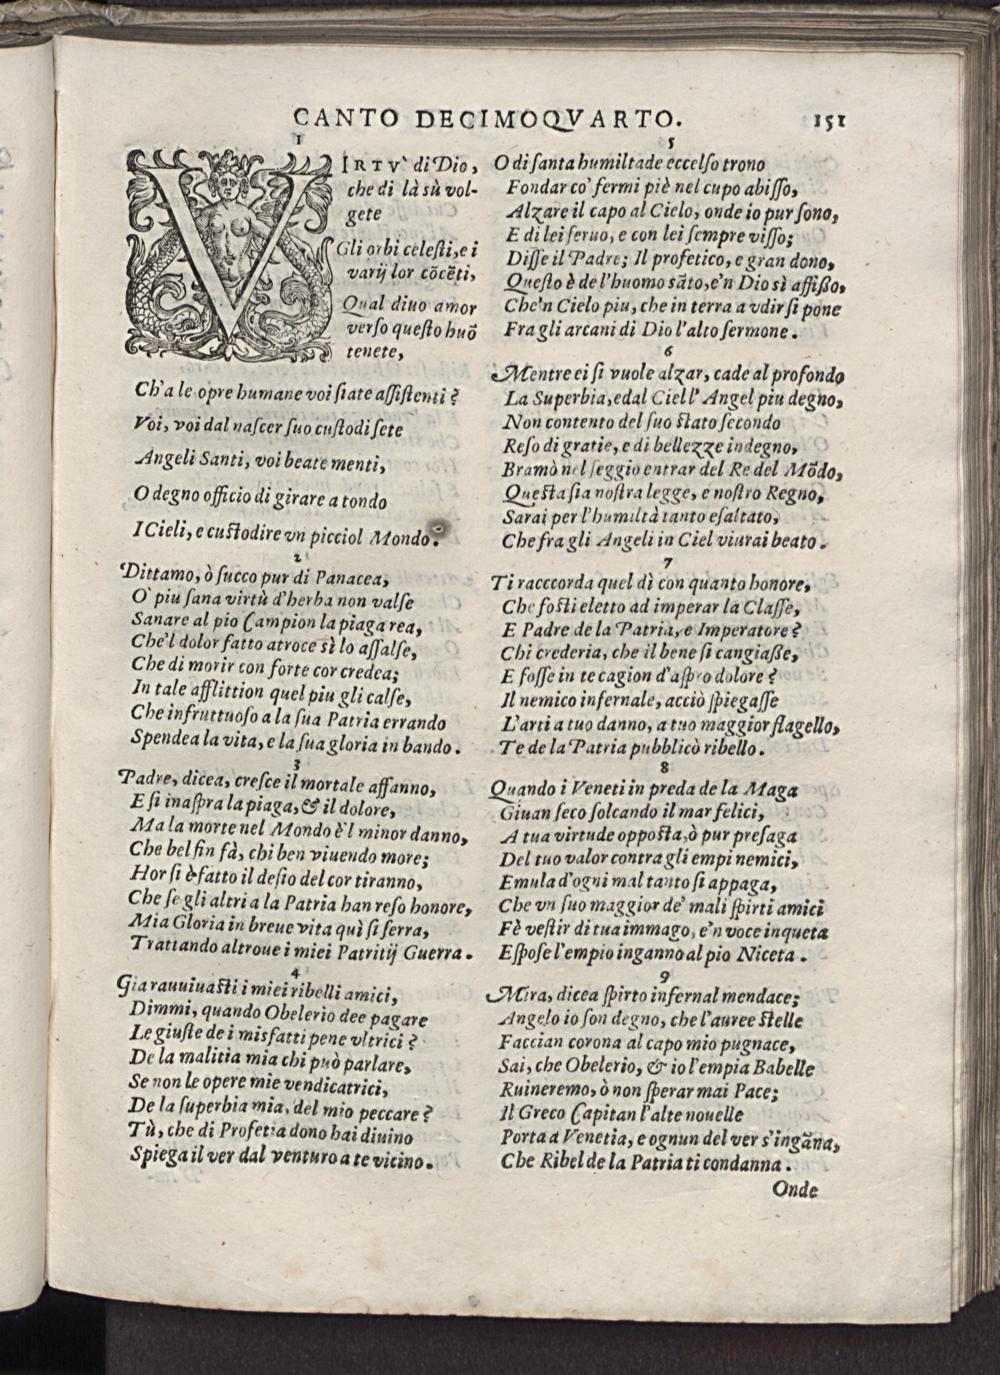 CANTO DECIMOQVARTO. 151
1
VIRTV` di Dio,
che di là sù vol-
gete
Gli orbi celesti, e i
varij lor cōcēti,
Qual diuo amor
verso questo huō
tenete,
Ch'a le opre humane voi siate assistenti?
Voi, voi dal nascer suo custodi sete
Angeli Santi, voi beate menti,
O degno officio di girare a tondo
I Cieli, e custodire vn picciol Mondo.
2
Dittamo, ò succo pur di Panacea,
O` piu sana virtù d'herba non valse
Sanare al pio Campion la piaga rea,
Che'l dolor fatto atroce sì lo assalse,
Che di morir con forte cor credea;
In tale afflittion quel piu gli calse,
Che infruttuoso a la sua Patria errando
Spendea la vita, e la sua gloria in bando.
3
Padre, dicea, cresce il mortale affanno,
E si inaspra la piaga, & il dolore,
Ma la morte nel Mondo è'l minor danno,
Che bel fin fà, chi ben viuendo more;
Hor si è fatto il desio del cor tiranno,
Che se gli altri a la Patria han reso honore,
Mia Gloria in breue vita quì si serra,
Trattando altroue i miei Patritij Guerra.
4
Gia rauuiuasti i miei ribelli amici,
Dimmi, quando Obelerio dee pagare
Le giuste de i misfatti pene vltrici?
De la malitia mia chi può parlare,
Se non le opere mie vendicatrici,
De la superbia mia, del mio peccare?
Tù, che di Profetia dono hai diuino
Spiega il ver dal venturo a te vicino.
5
O di santa humiltade eccelso trono
Fondar co' fermi piè nel cupo abisso,
Alzare il capo al Cielo, onde io pur sono,
E di lei seruo, e con lei sempre visso;
Disse il Padre; Il profetico, e gran dono,
Questo è de l'huomo sāto, e'n Dio sì affisso,
Che'n Cielo piu, che in terra a vdir si pone
Fra gli arcani di Dio l'alto sermone.
6
Mentre ei si vuole alzar, cade al profondo
La Superbia, e dal Ciel l'Angel piu degno,
Non contento del suo stato secondo
Reso di gratie, e di bellezze indegno,
Bramò nel seggio entrar del Re del Mōdo,
Questa sia nostra legge, e nostro Regno,
Sarai per l'humiltà tanto esaltato,
Che fra gli Angeli in Ciel viurai beato.
7
Ti racccorda quel dì con quanto honore,
Che fosti eletto ad imperar la Classe,
E Padre de la Patria, e Imperatore?
Chi crederia, che il bene si cangiasse,
E fosse in te cagion d'aspro dolore?
Il nemico infernale, acciò spiegasse
L'arti a tuo danno, a tuo maggior flagello,
Te de la Patria pubblicò ribello.
8
Quando i Veneti in preda de la Maga
Giuan seco solcando il mar felici,
A tua virtude opposta, ò pur presaga
Del tuo valor contra gli empi nemici,
Emula d'ogni mal tanto si appaga,
Che vn suo maggior de' mali spirti amici
Fè vestir di tua immago, e'n voce inqueta
Espose l'empio inganno al pio Niceta.
9
Mira, dicea spirto infernal mendace;
Angelo io son degno, che l'auree stelle
Faccian corona al capo mio pugnace,
Sai, che Obelerio, & io l'empia Babelle
Ruineremo, ò non sperar mai Pace;
Il Greco Capitan l'alte nouelle
Porta a Venetia, e ognun del ver s'ingāna,
Che Ribel de la Patria ti condanna.
Onde